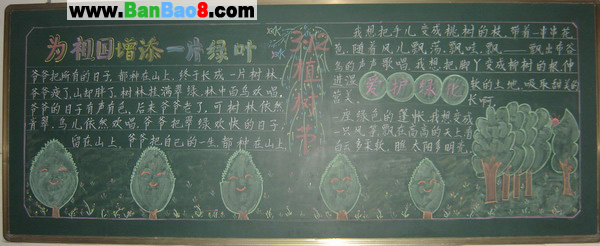 www.BanBao8.com
为祖国增添一片绿叶
爷爷把所有的日子，都种在山上，终于长成一片树林，
爷爷瘦了，山却胖了，树林挂满翠绿，林中雨鸟欢唱，
爷爷的日子有声有色，后来爷爷老了，可树林依然
青翠，鸟儿依然欢唱，爷爷把翠绿欢快的日子，
留在山上，爷爷把自己的一生都种在山上。
3.12植树节
我想把手儿变成桃树的枝，带着一串串花
，随着风儿飘荡，飘呀，飘——飘出布谷
鸟的声声歌唱。我想把脚丫变成柳树的根伸
进湿软的土地，吸取甜美的
营养，长啊，
爱护绿化
一座绿色的篷帐，我想变成
一只风筝，飘在高高的天上看
白云多柔软，瞧太阳多明亮